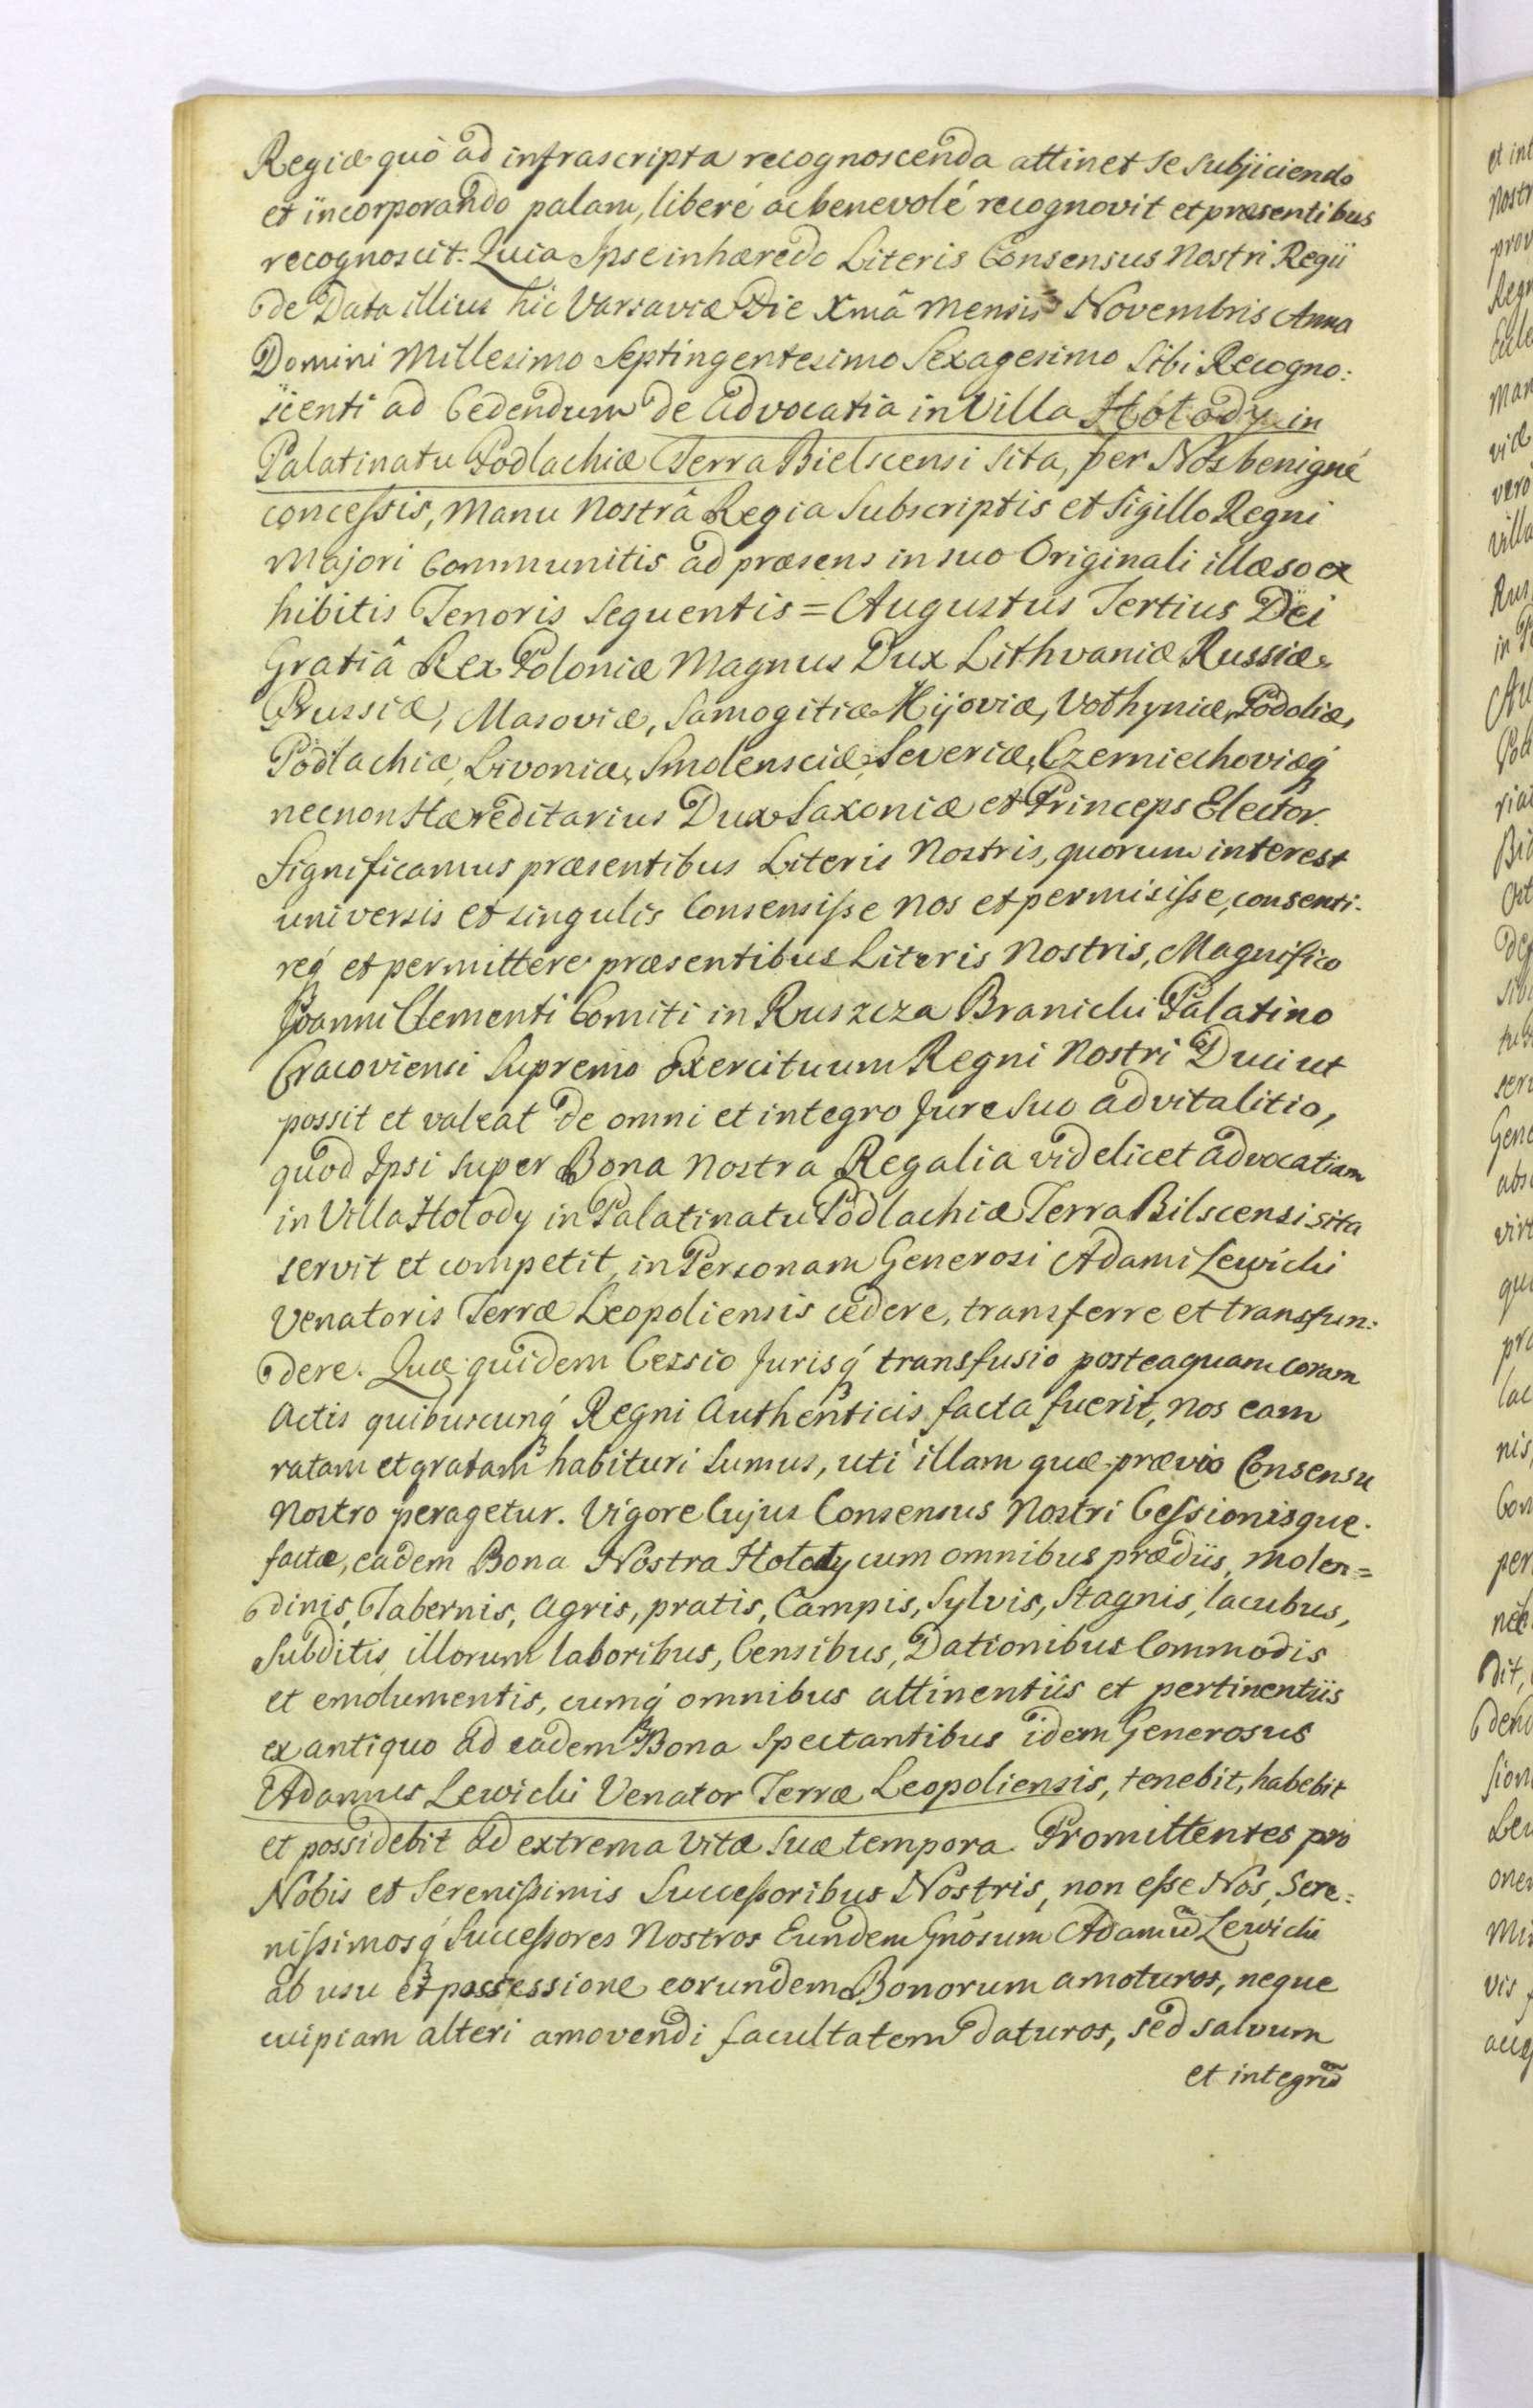 Regiæ quò ad infrascripta recognoscenda attinet se subjiciendo
et incorporando palam, liberé ac benevolé recognovit et præsentibus
recognoscit. Quia Ipse inhæredo Literis Consensus Nostri Regii
de Data illius hic Varsaviæ Die Xmâ Mensis Novembris Anno
Domini Millesimo Septingentesimo Sexagesimo Sibi Recogno:
scenti ad Cedendum de Advocatia in Villa Hołody in
Palatinatu Podlachiæ Terra Bielscensi Sita, per Nos benigné
concessis, Manu Nostrâ Regia Subscriptis et Sigillo Regni
Majori Communitis ad præsens in suo Originali illæso ex
hibitis Tenoris Sequentis = Augustus Tertius Dei
Gratiâ Rex Poloniæ Magnus Dux Lithvaniæ Russiæ,
Prussiæ, Masoviæ, Samogitiæ Kijoviæ, Vołhyniæ, Podoliæ,
Podlachiæ, Livoniæ, Smolensciæ, Severiæ, Czerniechoviæq́
necnon Hæreditarius Dux Saxoniæ et Princeps Elector.
Significamus præsentibus Literis Nostris, quorum interest
universis et singulis Consensisse Nos et permisisse, consenti-
req́ et permittere præsentibus Literis Nostris, Magnifico
Joanni Clementi Comiti in Ruszcza Branicki Palatino
Cracoviensi Supremo Exercituum Regni Nostri Duci ut
possit et valeat de omni et integro Jure Suo advitalitio,
quod Ipsi super Bona Nostra Regalia videlicet advocatiam
in Villa Hołody in Palatinatu Podlachiæ Terra Bilscensi sita
servit et competit, in Personam Generosi Adami Lewicki
Venatoris Terræ Leopoliensis cedere, transferre et transfun:
dere. Quæ quidem Cessio Jurisq́ transfusio posteaquam coram
Actis quibuscunq́ Regni Authenticis facta fuerit, nos eam
ratam et gratam habituri Sumus, uti illam quæ prævio Consensu
Nostro peragetur. Vigore Cujus Consensus Nostri Cessionisque
factæ, eadem Bona Nostra Hołody cum omnibus prædiis, molen=
dinis, Tabernis, Agris, pratis, Campis, Sylvis, Stagnis, lacubus,
Subditis illorum laboribus, Censibus, Dationibus Commodis
et emolumentis, cumq́ omnibus attinentiis et pertinentiis
ex antiquo ad eadem Bona Spectantibus idem Generosus
Adamus Lewicki Venator Terræ Leopoliensis, tenebit, habebit
et possidebit ad extrema Vitæ Suæ tempora. Promittentes pro
Nobis et Serenissimis Successoribus Nostris, non esse Nos, Sere:
nissimosq́ Successores Nostros Eundem Gnosum Adamū Lewicki
ab usu et possessione eorundem Bonorum amoturos, neque
cuipiam alteri amovendi facultatem daturos, sed salvum
et integrū